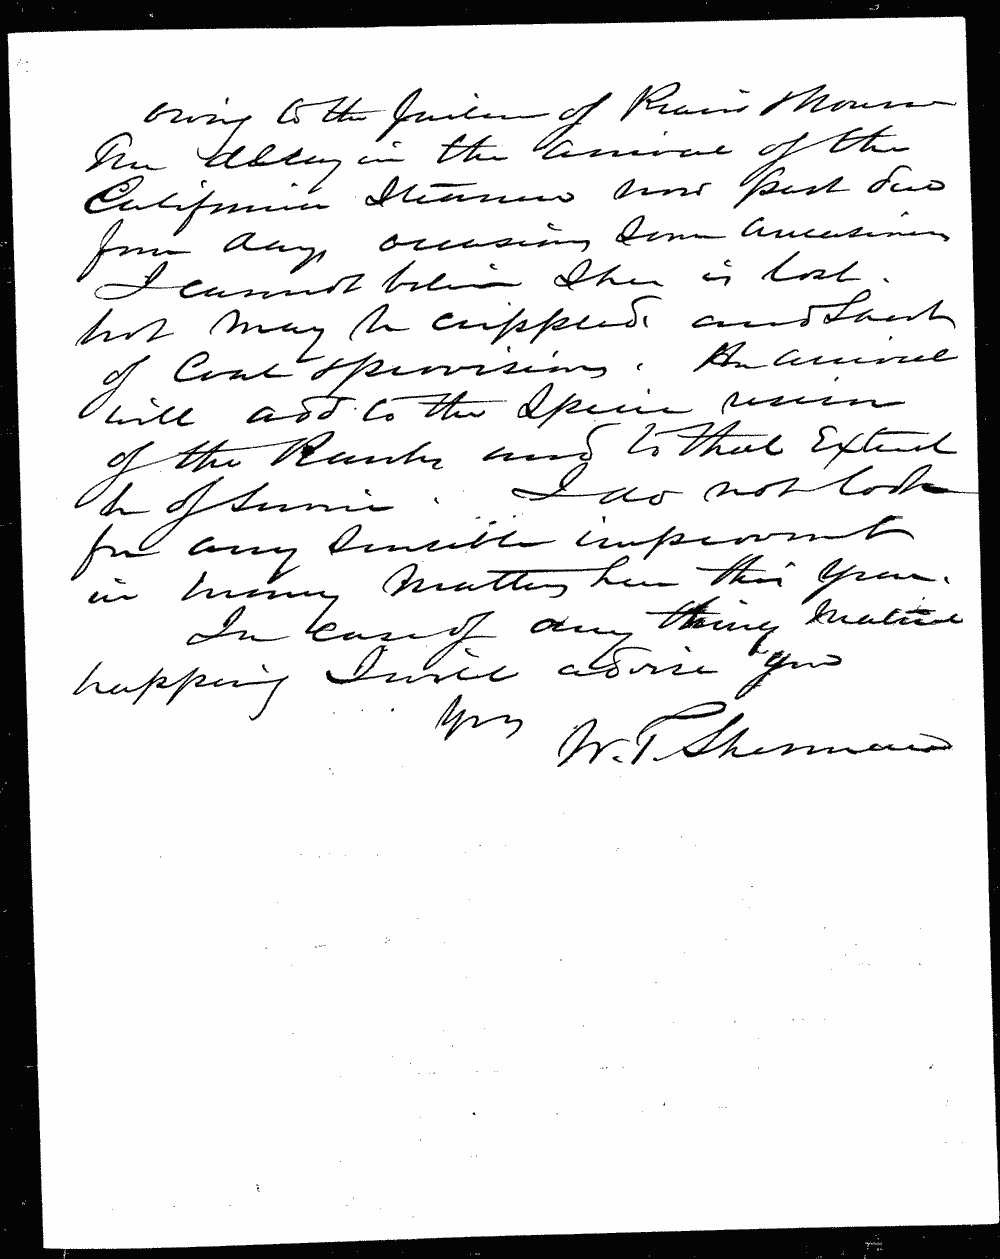 owing to the failure of Prairie &
The delay in the arrival of the
California Steamer now past due
four days, occasions some uneasiness
I cannot believe She is lost.
but may be crippled, and Short
of Coal & provisions. Her arrival
will add to the Specie reserve
of the Banks and to that Extent
be of Service. I do not look
for any sensible improvemt
in money matters here this year.
In case of any thing material
happening I will advise you
Yrs
W. T. Sherman